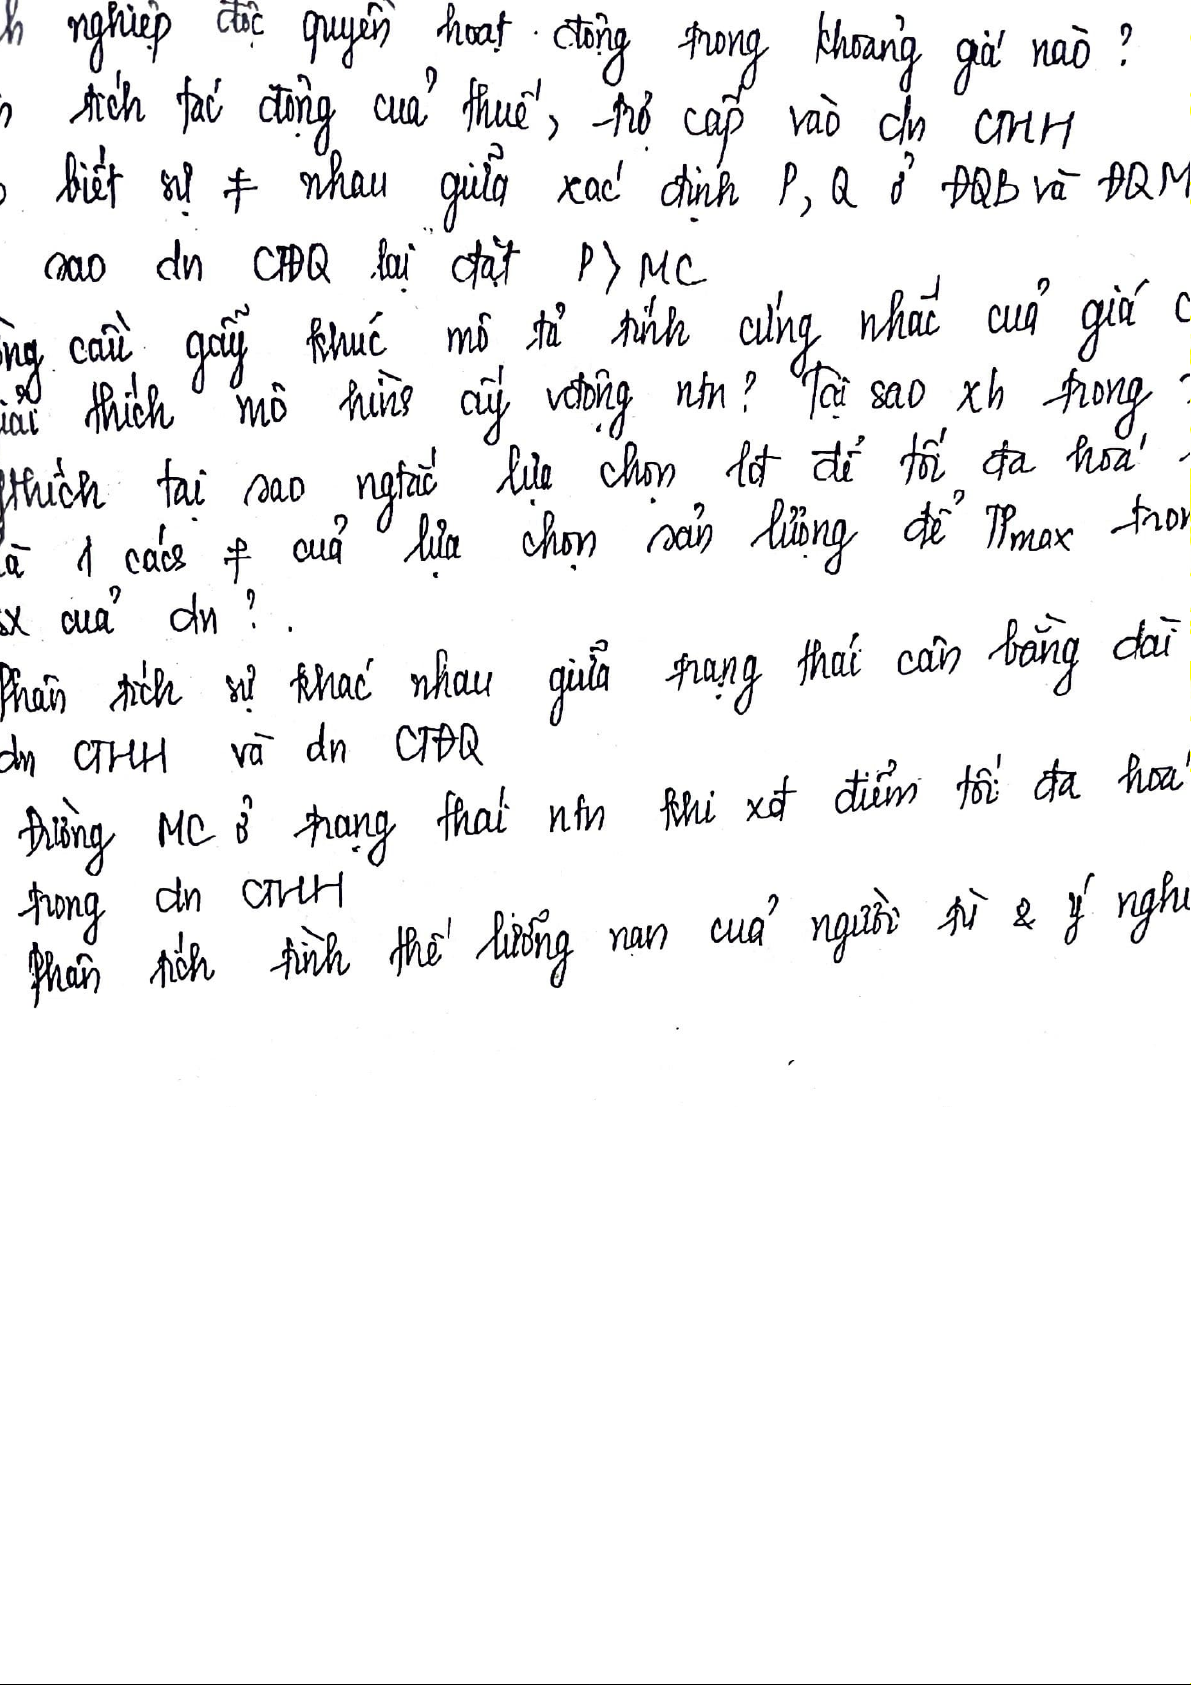 h nghiệp độc quyền hoạt động trong khoảng giá nào?
tích tác động của thuế, trợ cấp vào dn CTHH
biết sự ≠ nhau giữa xác định P, Q ở ĐQB và ĐQM
sao dn CTĐQ lại đặt P > MC
ờng cầu gãy khúc mô tả tính cứng nhắc của giá c
iải thích mô hình ấy vđộng ntn? Tại sao xh trong
thích tại sao ngtắc lựa chọn lđ để tối đa hoá
là 1 cách ≠ của lựa chọn sản lượng để TPmax tron
sx của dn?.
Phân tích sự khác nhau giữa trạng thái cân bằng dài
dn CTHH và dn CTĐQ
Đường MC ở trạng thái ntn khi xđ điểm tối đa hoá
trong dn CTHH
Phân tích tình thế lưỡng nan của người tù & ý nghĩ